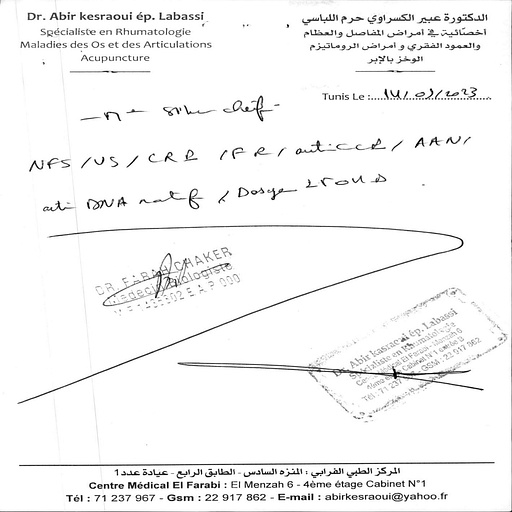 Dr. Abir kesraoui ép. Labassi
Spécialiste en Rhumatologie
Maladies des Os et des Articulations
Acupuncture
الدكتورة عبير الكسراوي حرم اللباسي
أخصائية في أمراض المفاصل والعظام
والعمود الفقري و أمراض الروماتيزم
الوخز بالإبر
Tunis Le :
NFS / VS / CRP / FR / anti CCP / AAN /
anti DNA natif / Dosage
DR. FARAH CHAKER
Médecin Biologiste
Dr. Abir kesraoui ép. Labassi
Spécialiste en Rhumatologie
المركز الطبي الفرابي : المنزه السادس - الطابق الرابع - عيادة عدد 1
Centre Médical El Farabi : El Menzah 6 - 4ème étage Cabinet N°1
Tél : 71 237 967 - Gsm : 22 917 862 - E-mail : abirkesraoui@yahoo.fr